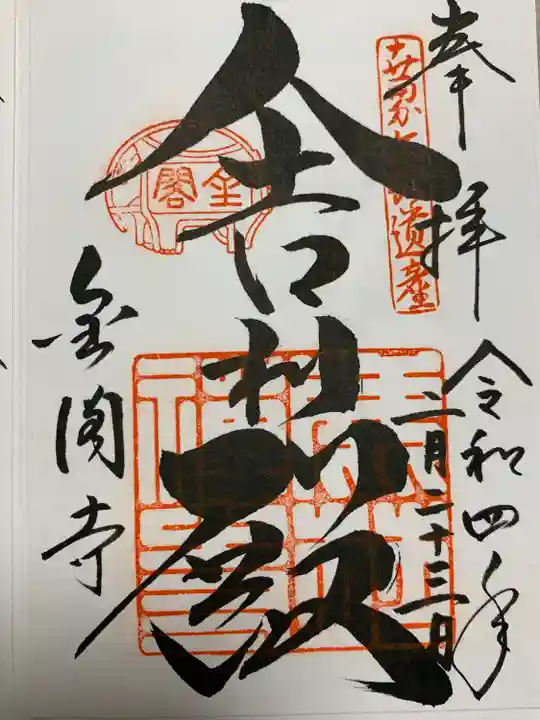 奉拝
世界文化遺産
令和四年
二月二十三日
舎利殿
金閣
金閣寺